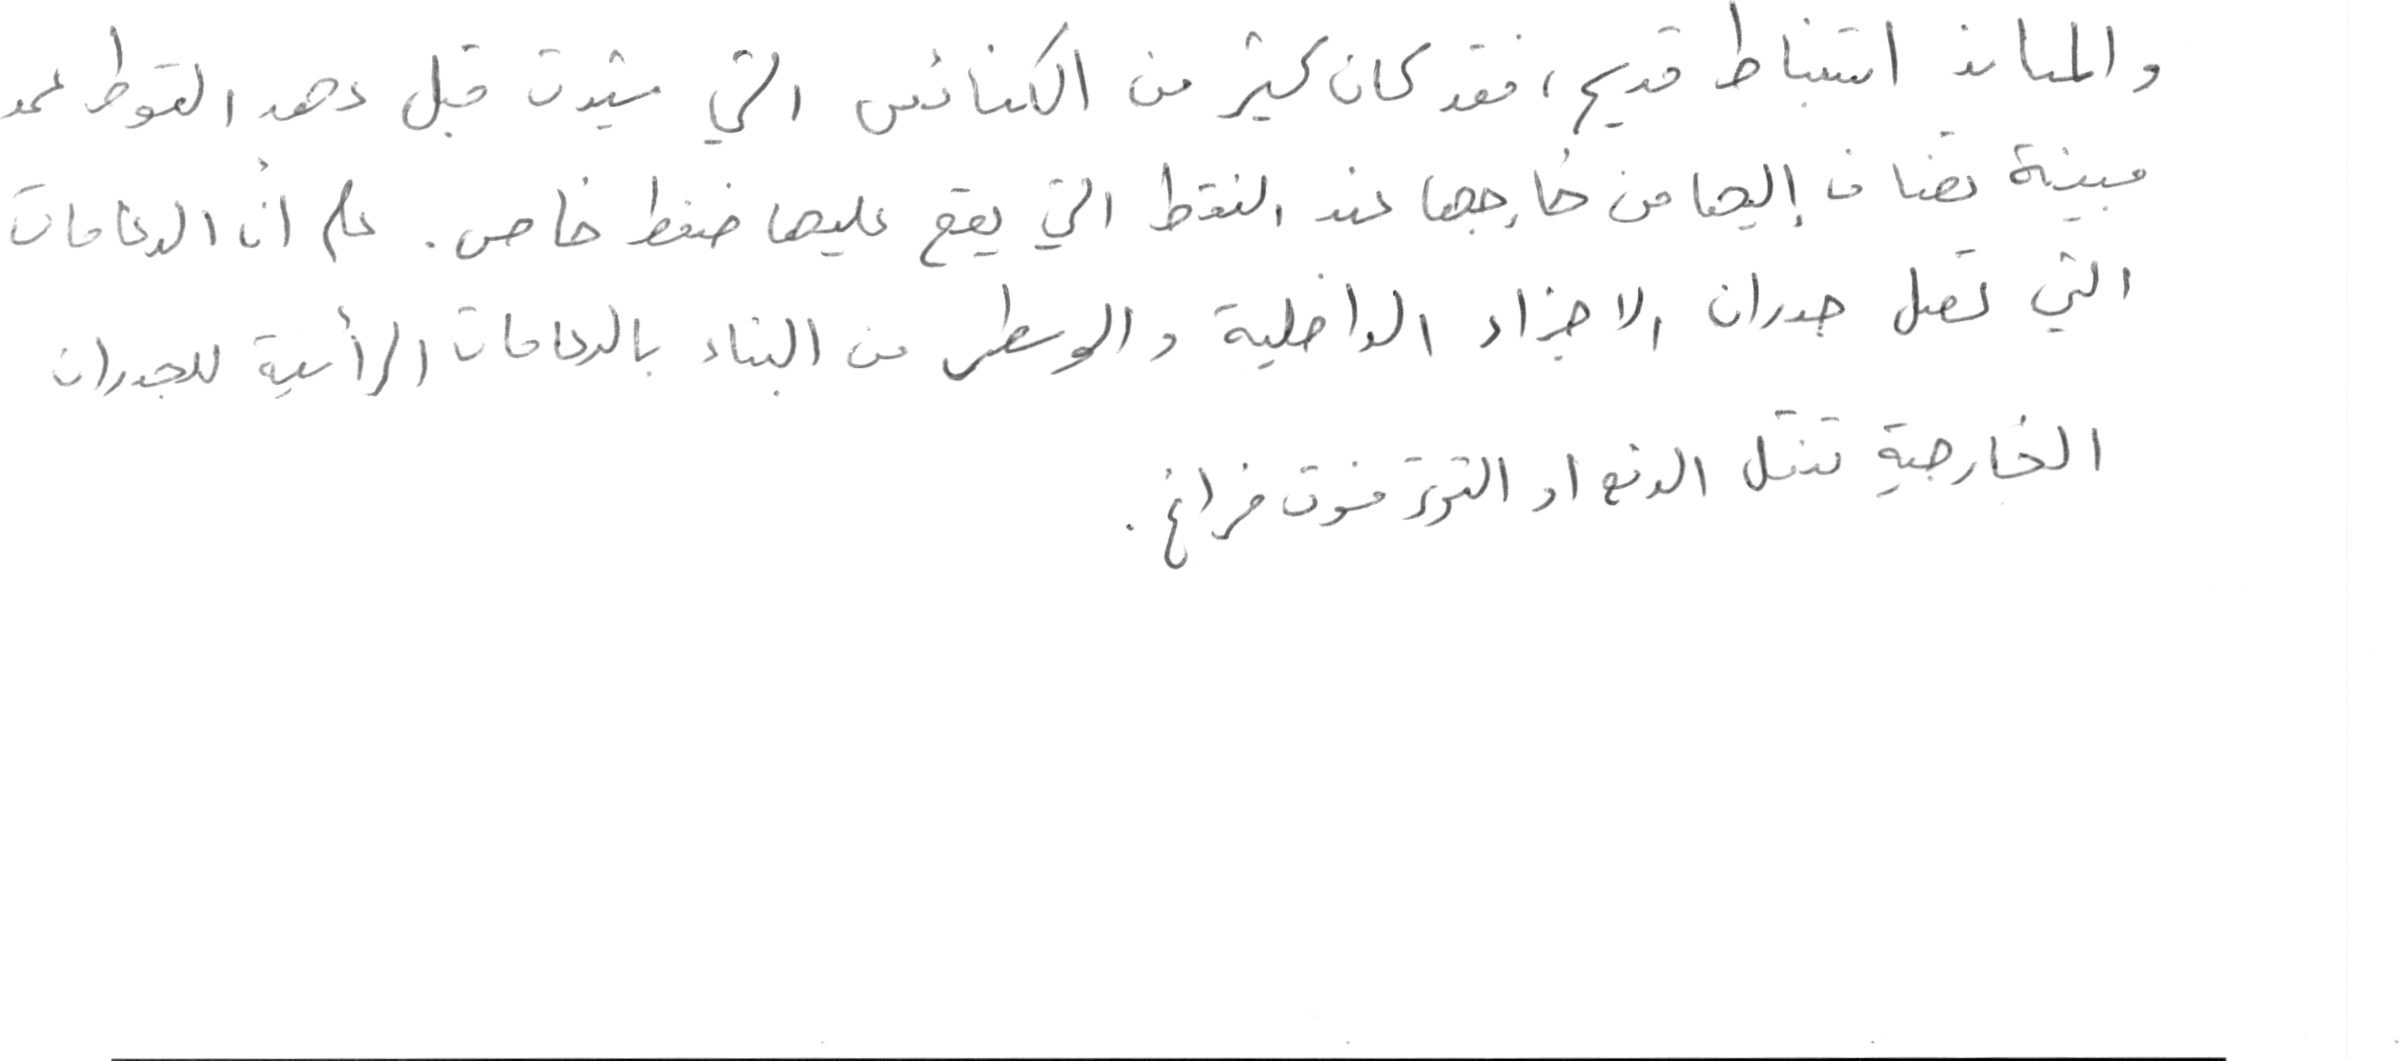 والمساند استنباط قديم، فقد كان كثير من الكنائس التي شيدت قبل عهد القوط عمد
مبينة تضاف إليها من خارجها عند النقط التي يقع عليها ضغط خاص. على أن الدعامات
التي تصل جدران الاجزاء الداخلية والوسطى من البناء بالدعامات الرأسية للجدران
الخارجية تنقل الدفع او التوتر فوق فراغ.